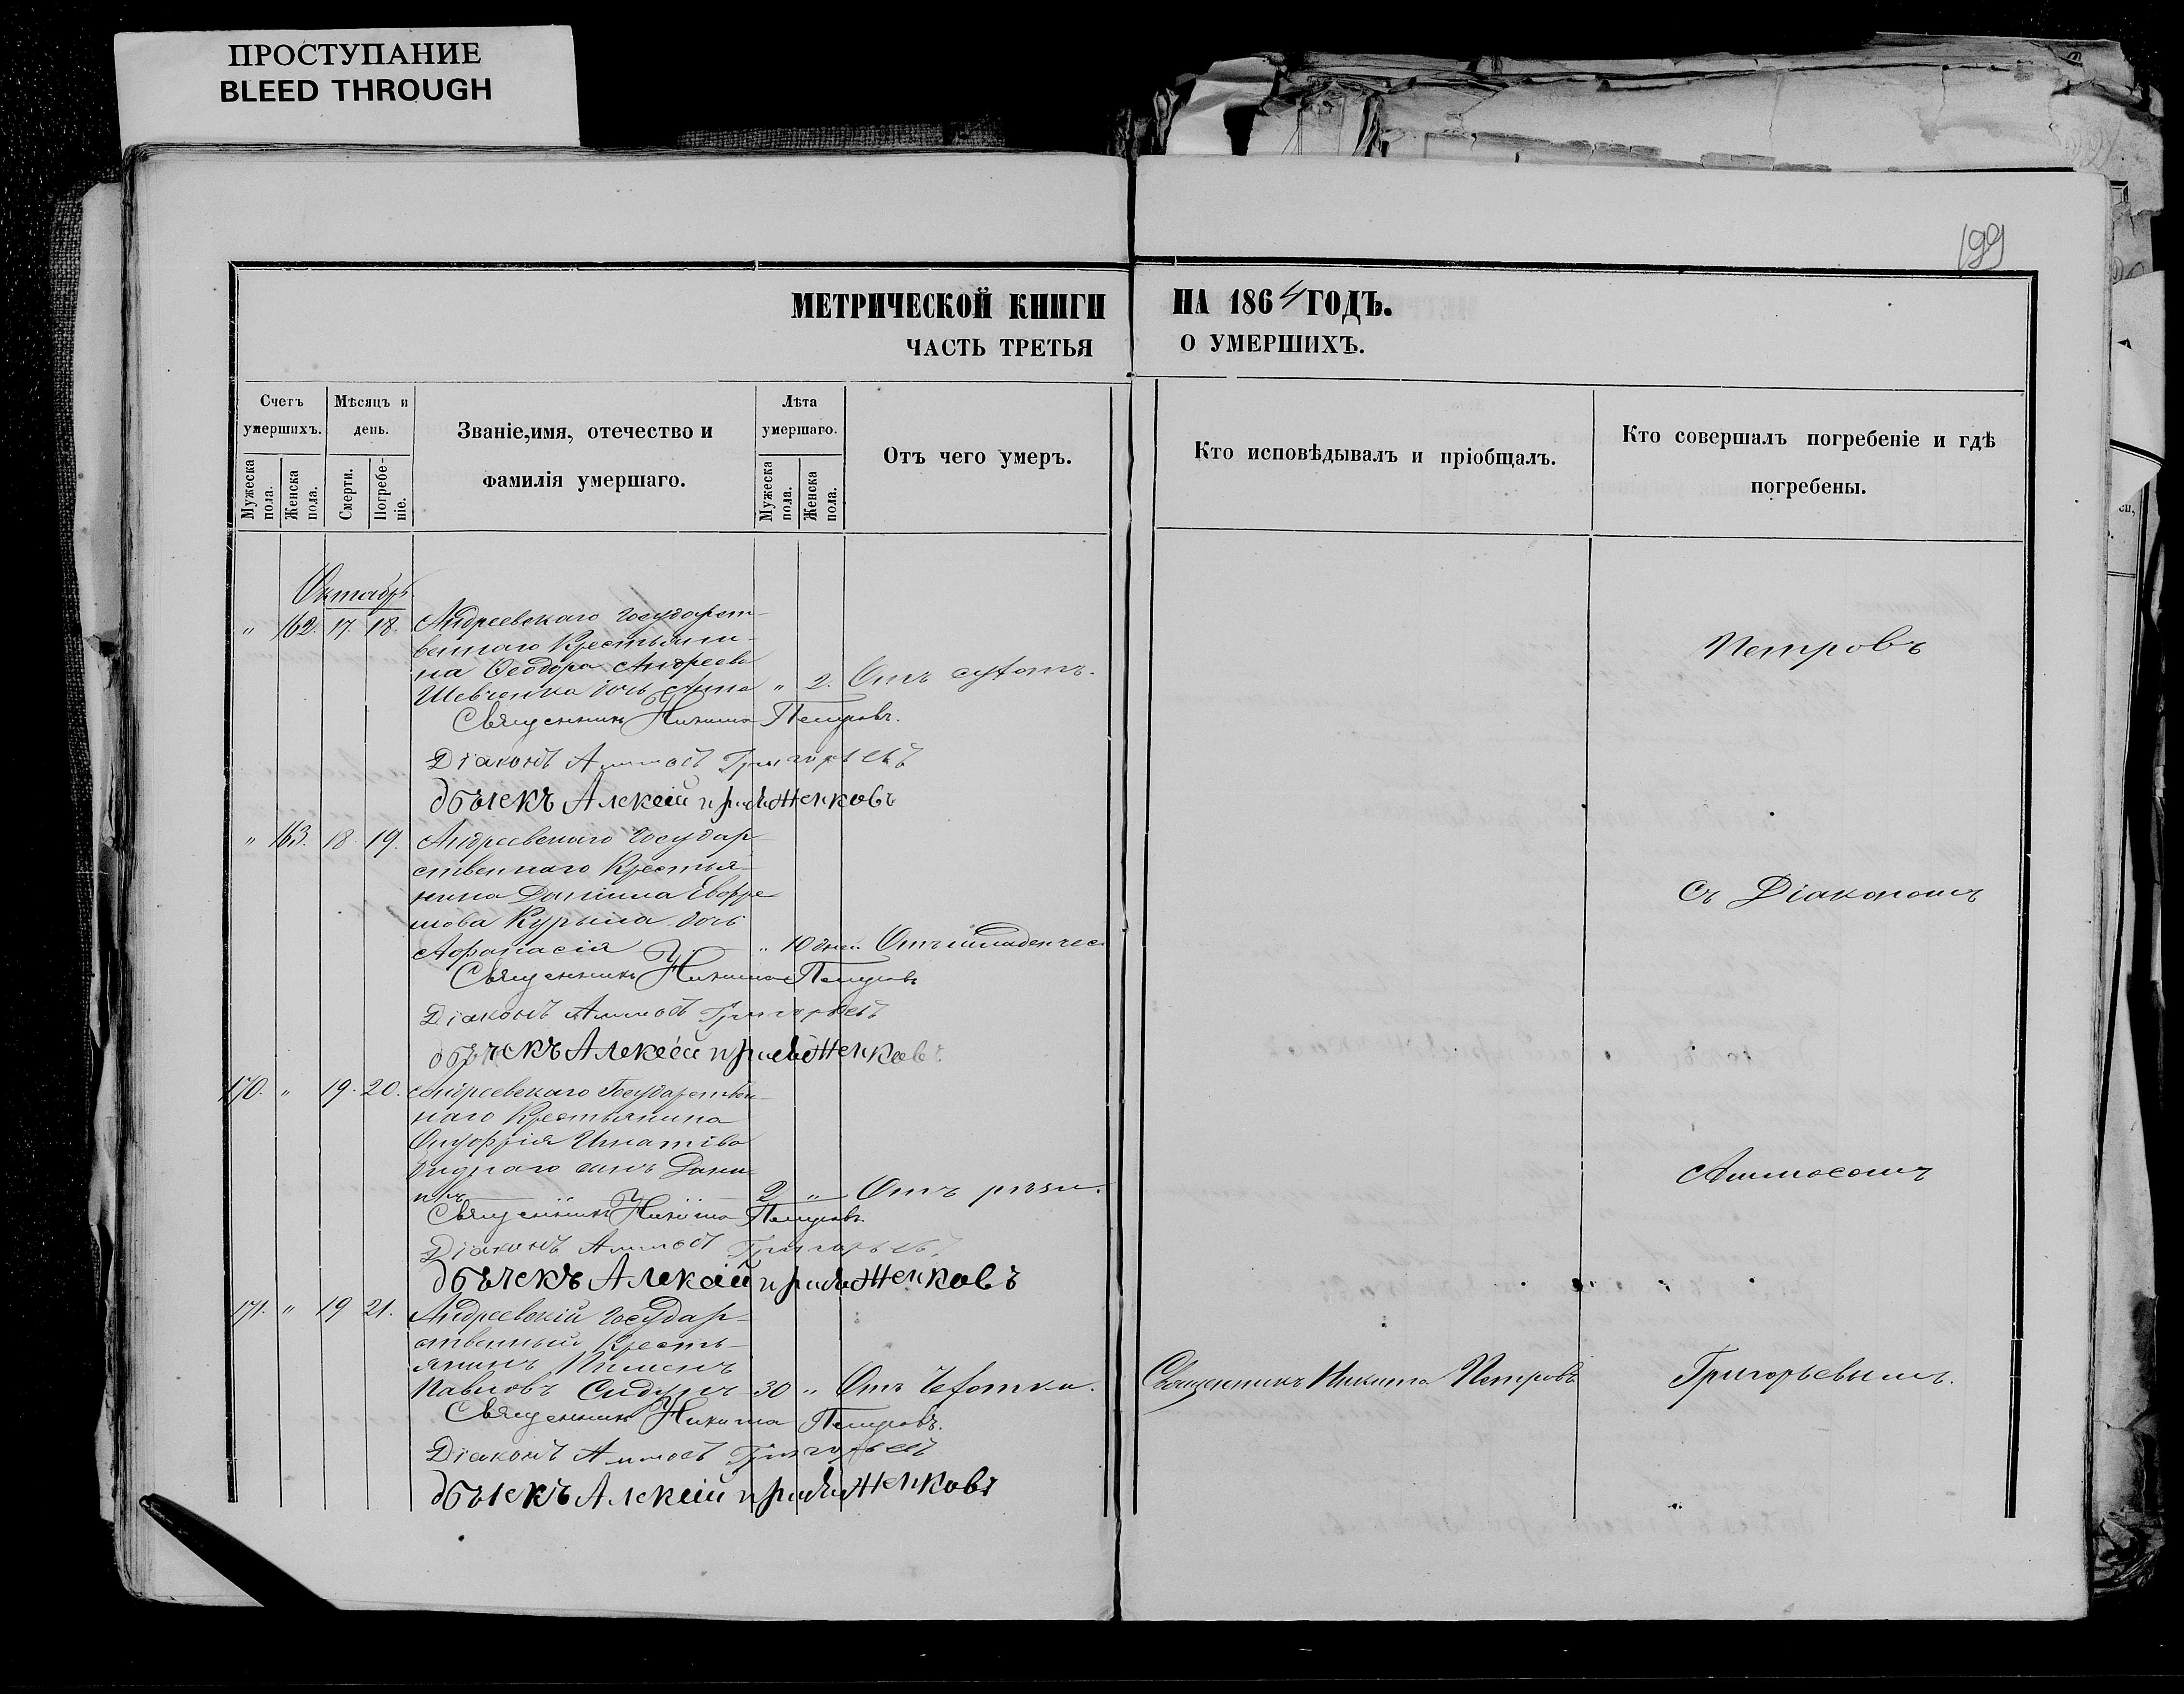 ПРОСТУПАНИЕ
BLEED THROUGH
199
МЕТРИЧЕСКОЙ КНИГИ НА 1864 ГОДЪ.
ЧАСТЬ ТРЕТЬЯ О УМЕРШИХЪ.
Счетъ умершихъ.
Мужеска пола.
Женска пола.
Мѣсяцъ и день.
Смерти.
Погребеніе.
Званіе, имя, отечество и
фамилія умершаго.
Лѣта умершаго.
Мужеска пола.
Женска пола.
Отъ чего умеръ.
Кто исповѣдывалъ и пріобщалъ.
Кто совершалъ погребеніе и гдѣ
погребены.
Октябрь
" 162. 17. 18. Андреевскаго Государст-
веннаго Крестьяни-
на Ѳеодора Андреева
Шевченка дочь Анна " 2. Отъ сухотъ.
Петровъ
Священникъ Никита Петровъ.
Діаконъ Аммосъ Григорьевъ
дьячекъ Алексій
" 163. 18 19. Андреевскаго Государ-
ственнаго Крестья-
нина Даніила Евфре-
мова Курыла дочь
Аѳанасія " 10 дней Отъ младенчес
Съ Діакономъ
Священникъ Никита Петровъ
Діаконъ Аммосъ Григорьевъ
дьячекъ Алексій
170. " 19. 20. Андреевскаго Государствен-
наго Крестьянина
Онуфрія Игнатіева
сынъ Дани-
илъ 2 " Отъ рѣзи.
Аммосомъ
Священникъ Никита Петровъ.
Діаконъ Аммосъ Григорьевъ
дьячекъ Алексій
171. " 19 21. Андреевскій Государ-
ственный Кресть-
янинъ Пименъ
Павловъ 30 " Отъ Чехотки. Священникъ Никита Петровъ Григорьевымъ.
Священникъ Никита Петровъ.
Діаконъ Аммосъ Григорьевъ
дьячекъ Алексій